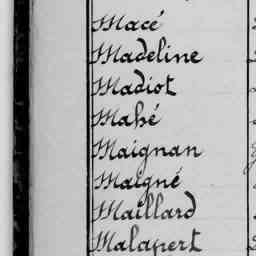 Macé
Madeline
Madiot
Mahé
Maignan
Maigné
Maillard
Malapert